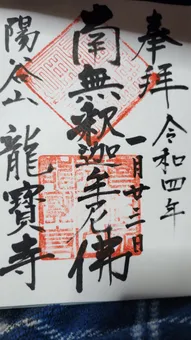 奉拝
令和四年
一月廿三日
南無釈迦牟尼佛
陽谷山
龍寳寺